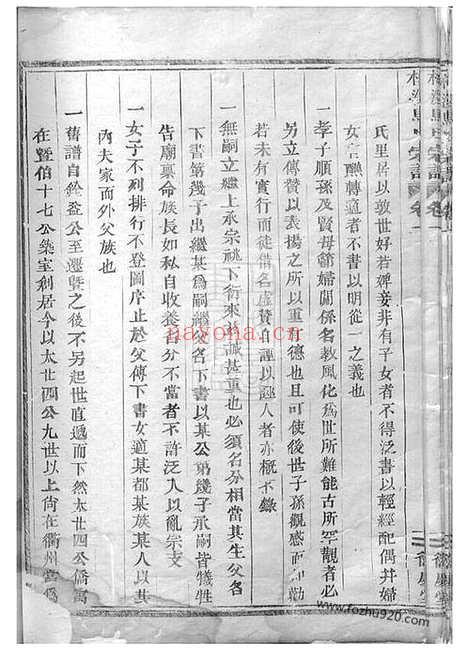 氏里居以敦世好若婢妾非有子女者不得泛書以輕經配偶并婦
女言醮轉適者不書以明從一之義也
一孝子順孫及賢母節婦關係名教風化為世所難能古所罕觀者必
另立傳贊以表揚之所以重德也且可使後世子孫觀感而
若未有實行而徒借名虛贊自誣以誣人者亦概不錄
一無嗣立繼上承宗祧下衍來誠甚重也必須名分相當其生父名
下書第幾子出繼某為嗣繼父名下書以某公第幾子承嗣皆犧牲
告廟稟命族長如私自收養名分不當者不許泛入以亂宗支
一女子不列排行不登圖序止於父傳下書女適某都某族某人以其
內夫家而外父族也
一舊譜自銓益公至遷暨之後不另起世直遞而下然太廿四公僑寓
在暨伯十七公築室剏居今以太廿四公九世以上尚在衢州
宗譜 卷一
nayona.cn
www.fozhu920.com